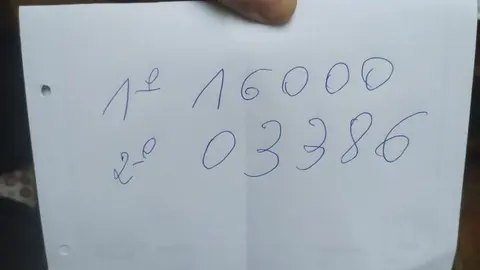 1º 16000
2º 03386